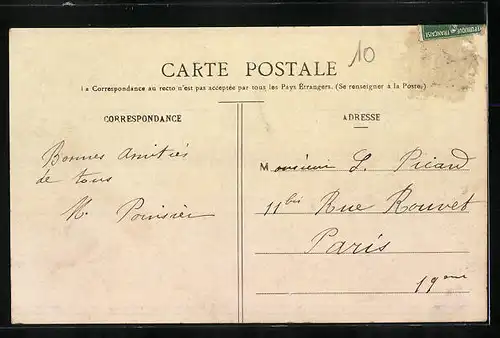 10
RÉPUBLIQUE FRANÇAISE
CARTE POSTALE
La Correspondance au recto n'est pas acceptée par tous les Pays Étrangers. (Se renseigner à la Poste)
CORRESPONDANCE
Bonnes amitiés
de tous
ADRESSE
Monsieur L. Picard
11 bis Rue Rouvet
Paris
19eme